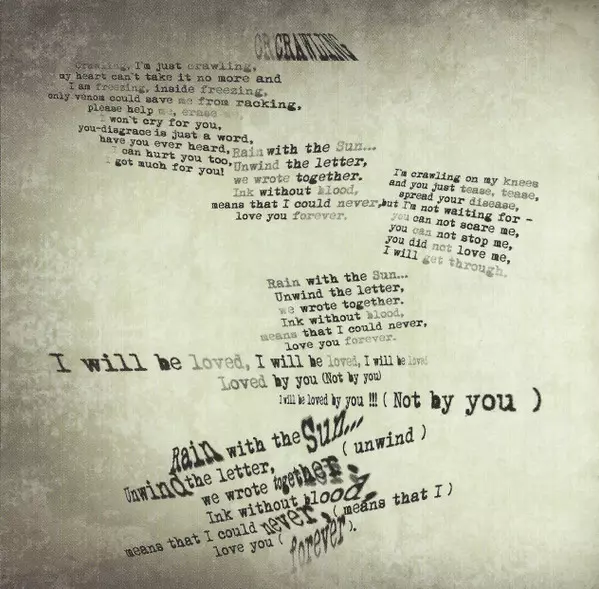 OR CRAWLING
Crawling, I'm just crawling,
my heart can't take it no more and
I am freezing, inside freezing,
only venom could save me from racking,
please help me, erase me
I won't cry for you,
you-disgrace is just a word,
have you ever heard,
I can hurt you too,
I got much for you!
Rain with the Sun...
Unwind the letter,
we wrote together.
Ink without blood,
means that I could never,
love you forever.
I'm crawling on my knees
and you just tease, tease,
spread your disease,
but I'm not waiting for -
you can not scare me,
you can not stop me,
you did not love me,
I will get through.
Rain with the Sun...
Unwind the letter,
we wrote together.
Ink without blood,
means that I could never,
love you forever.
I will be loved, I will be loved, I will be loved
Loved by you (Not by you)
I will be loved by you !!! ( Not by you )
Rain with the Sun...
Unwind the letter, ( unwind )
we wrote together.
Ink without blood,
means that I could never, ( means that I )
love you ( forever ).